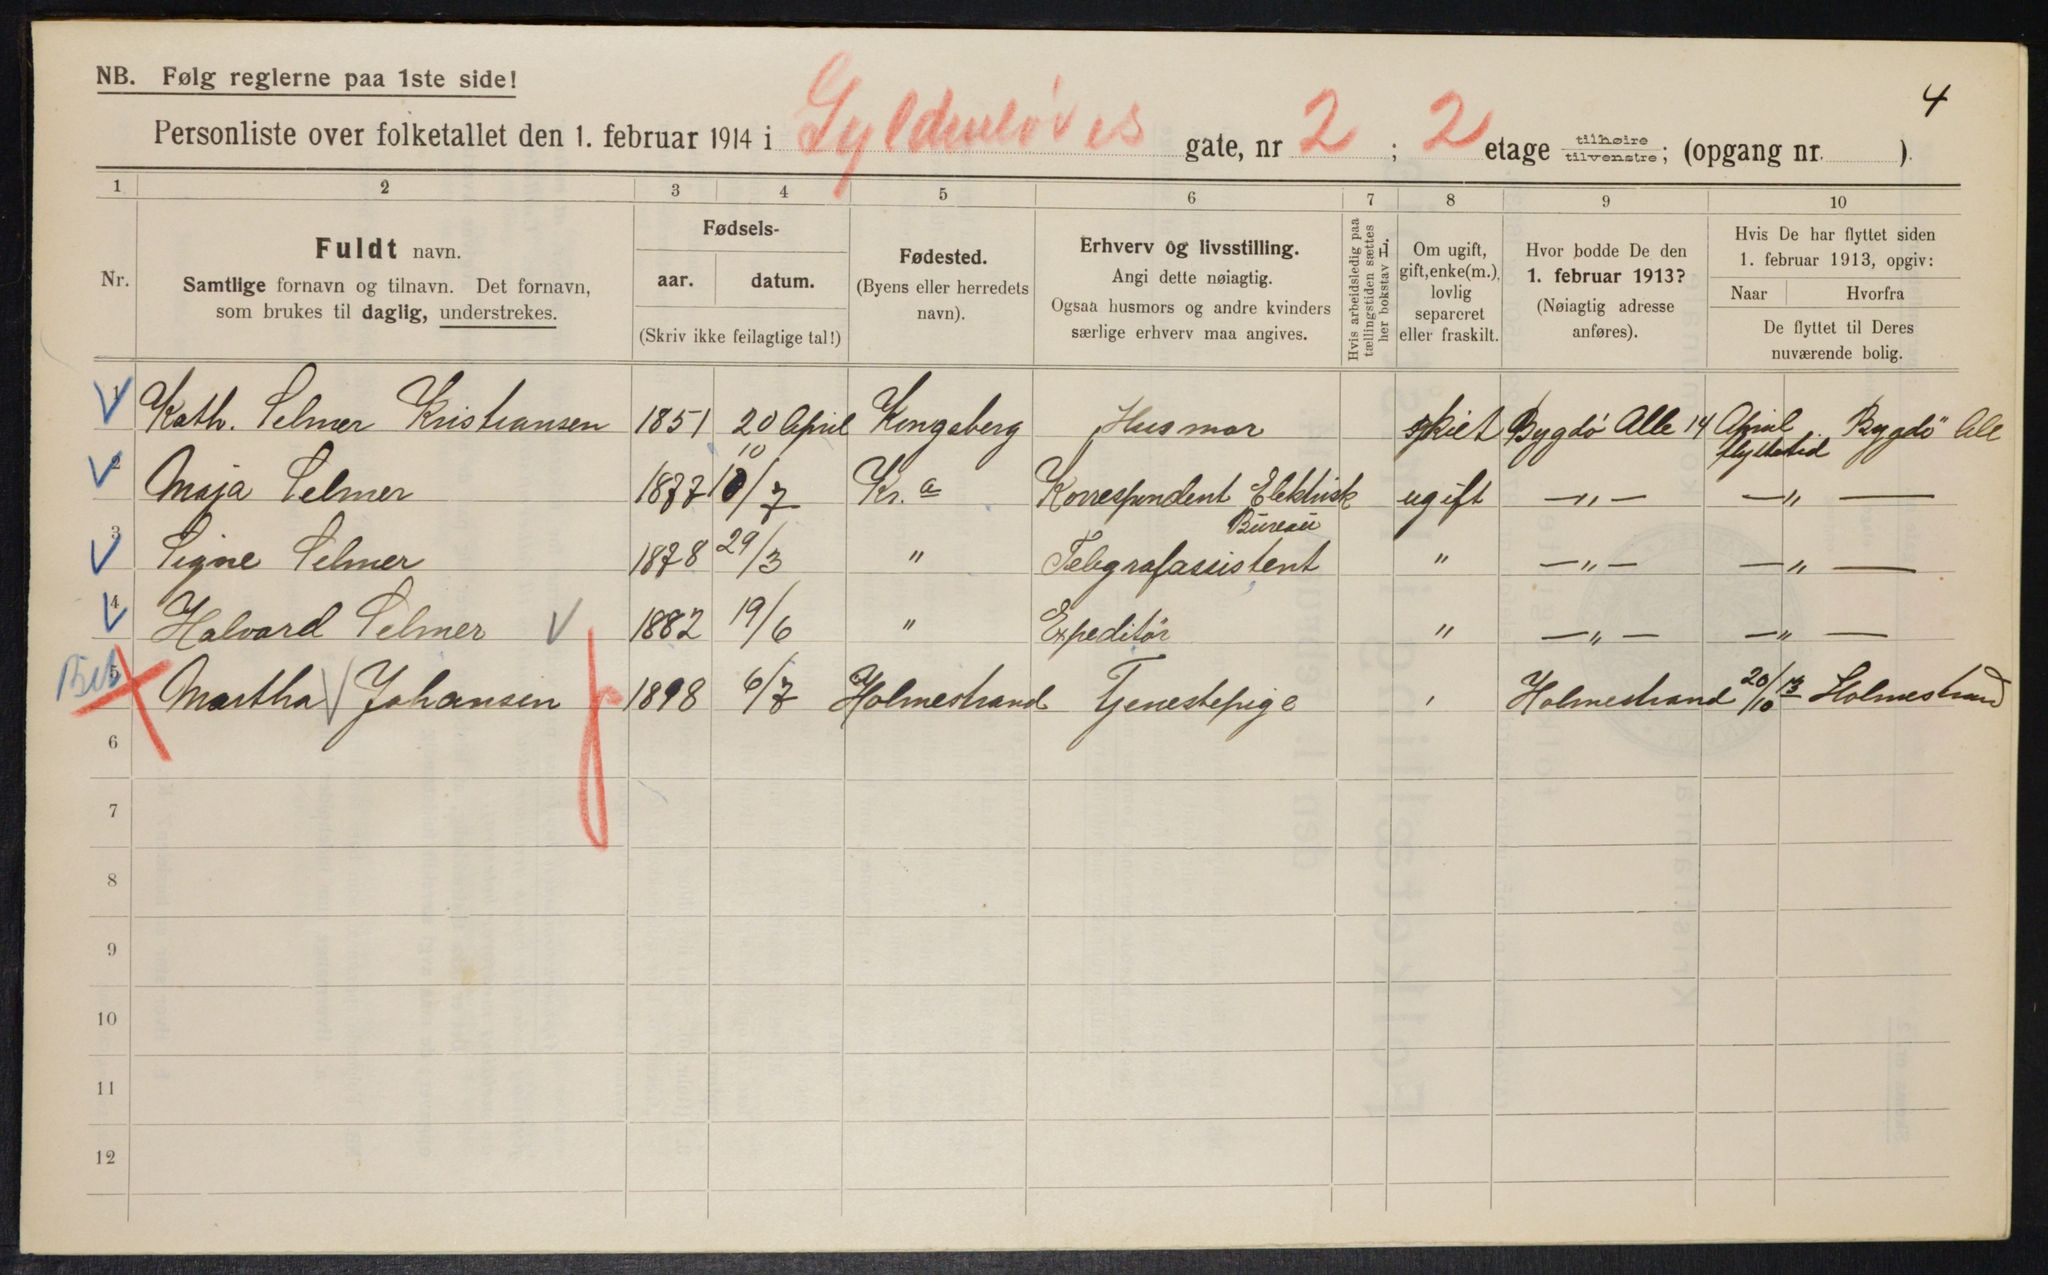 4
NB. Følg reglerne paa 1ste side!
Personliste over folketallet den 1. februar 1914 i Gyldenløves gate, nr 2 ; 2 etage tilhøire tilvenstre; (opgang nr. )
1 2 3 4 5 6 7 8 9 10
Nr.
Fuldt navn.
Samtlige fornavn og tilnavn. Det fornavn,
som brukes til daglig, understrekes.
Fødsels-
aar. datum.
(Skriv ikke feilagtige tal!)
Fødested.
(Byens eller herredets
navn).
Erhverv og livsstilling.
Angi dette nøiagtig.
Ogsaa husmors og andre kvinders
særlige erhverv maa angives.
Hvis arbeidsledig paa
tællingstiden sættes
her bokstav L.
Om ugift,
gift, enke(m.),
lovlig
separeret
eller fraskilt.
Hvor bodde De den
1. februar 1913?
(Nøiagtig adresse
anføres).
Hvis De har flyttet siden
1. februar 1913, opgiv:
Naar Hvorfra
De flyttet til Deres
nuværende bolig.
1 Kath. Selmer Kristiansen 1851 20 April Kongsberg Husmor skilt Bygdø Alle 14 April flyttetid Bygdö Alle
2 Maja Selmer 1877 10 10/7 Kr.a Korrespondent Elektrisk Bureau ugift —„— —„—
3 Signe Selmer 1878 29/3 " Telegrafassistent " —„— —„—
4 Halvard Selmer 1882 19/6 " Expeditør " —„— —„—
5 Martha Johansen 1898 6/7 Holmestrand Tjenestepige Holmestrand 20/10 13 Holmestrand
6
7
8
9
10
11
12